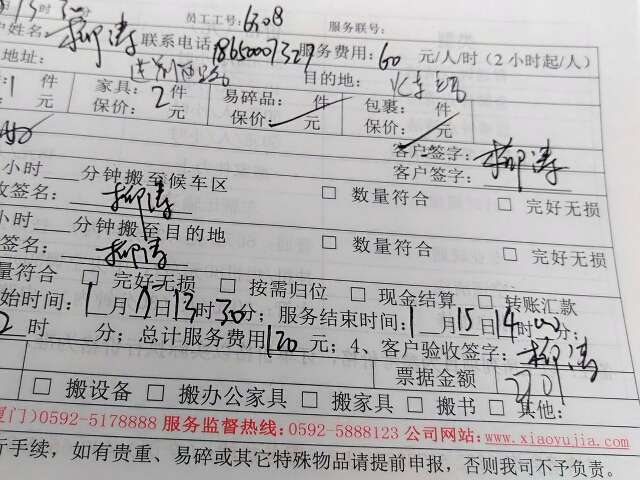 员工工号:6308 服务联号:
户姓名:柳涛 联系电话:18650007327 服务费用:60 元/人/时(2小时起/人)
地址: 目的地:火车站
1 件 家具:2 件 易碎品: 件 包裹: 件
元 保价: 元 保价: 元 保价: 元
客户签字:柳涛
客户签字:
小时 分钟搬至候车区
收签名:柳涛 □ 数量符合 □ 完好无损
小时 分钟搬至目的地
签名:柳涛 □ 数量符合 □ 完好无损
量符合 □ 完好无损 □ 按需归位 □ 现金结算 □ 转账汇款
始时间:1月 日13时30分;服务结束时间:1月15日14时00分;
2时 分;总计服务费用120元;4、客户验收签字:柳涛
票据金额
□ 搬设备 □ 搬办公家具 □ 搬家具 □ 搬书 □ 其他:
厦门)0592-5178888 服务监督热线:0592-5888123 公司网站:www.xiaoyujia.com
行手续,如有贵重、易碎或其它特殊物品请提前申报,否则我司不予负责。